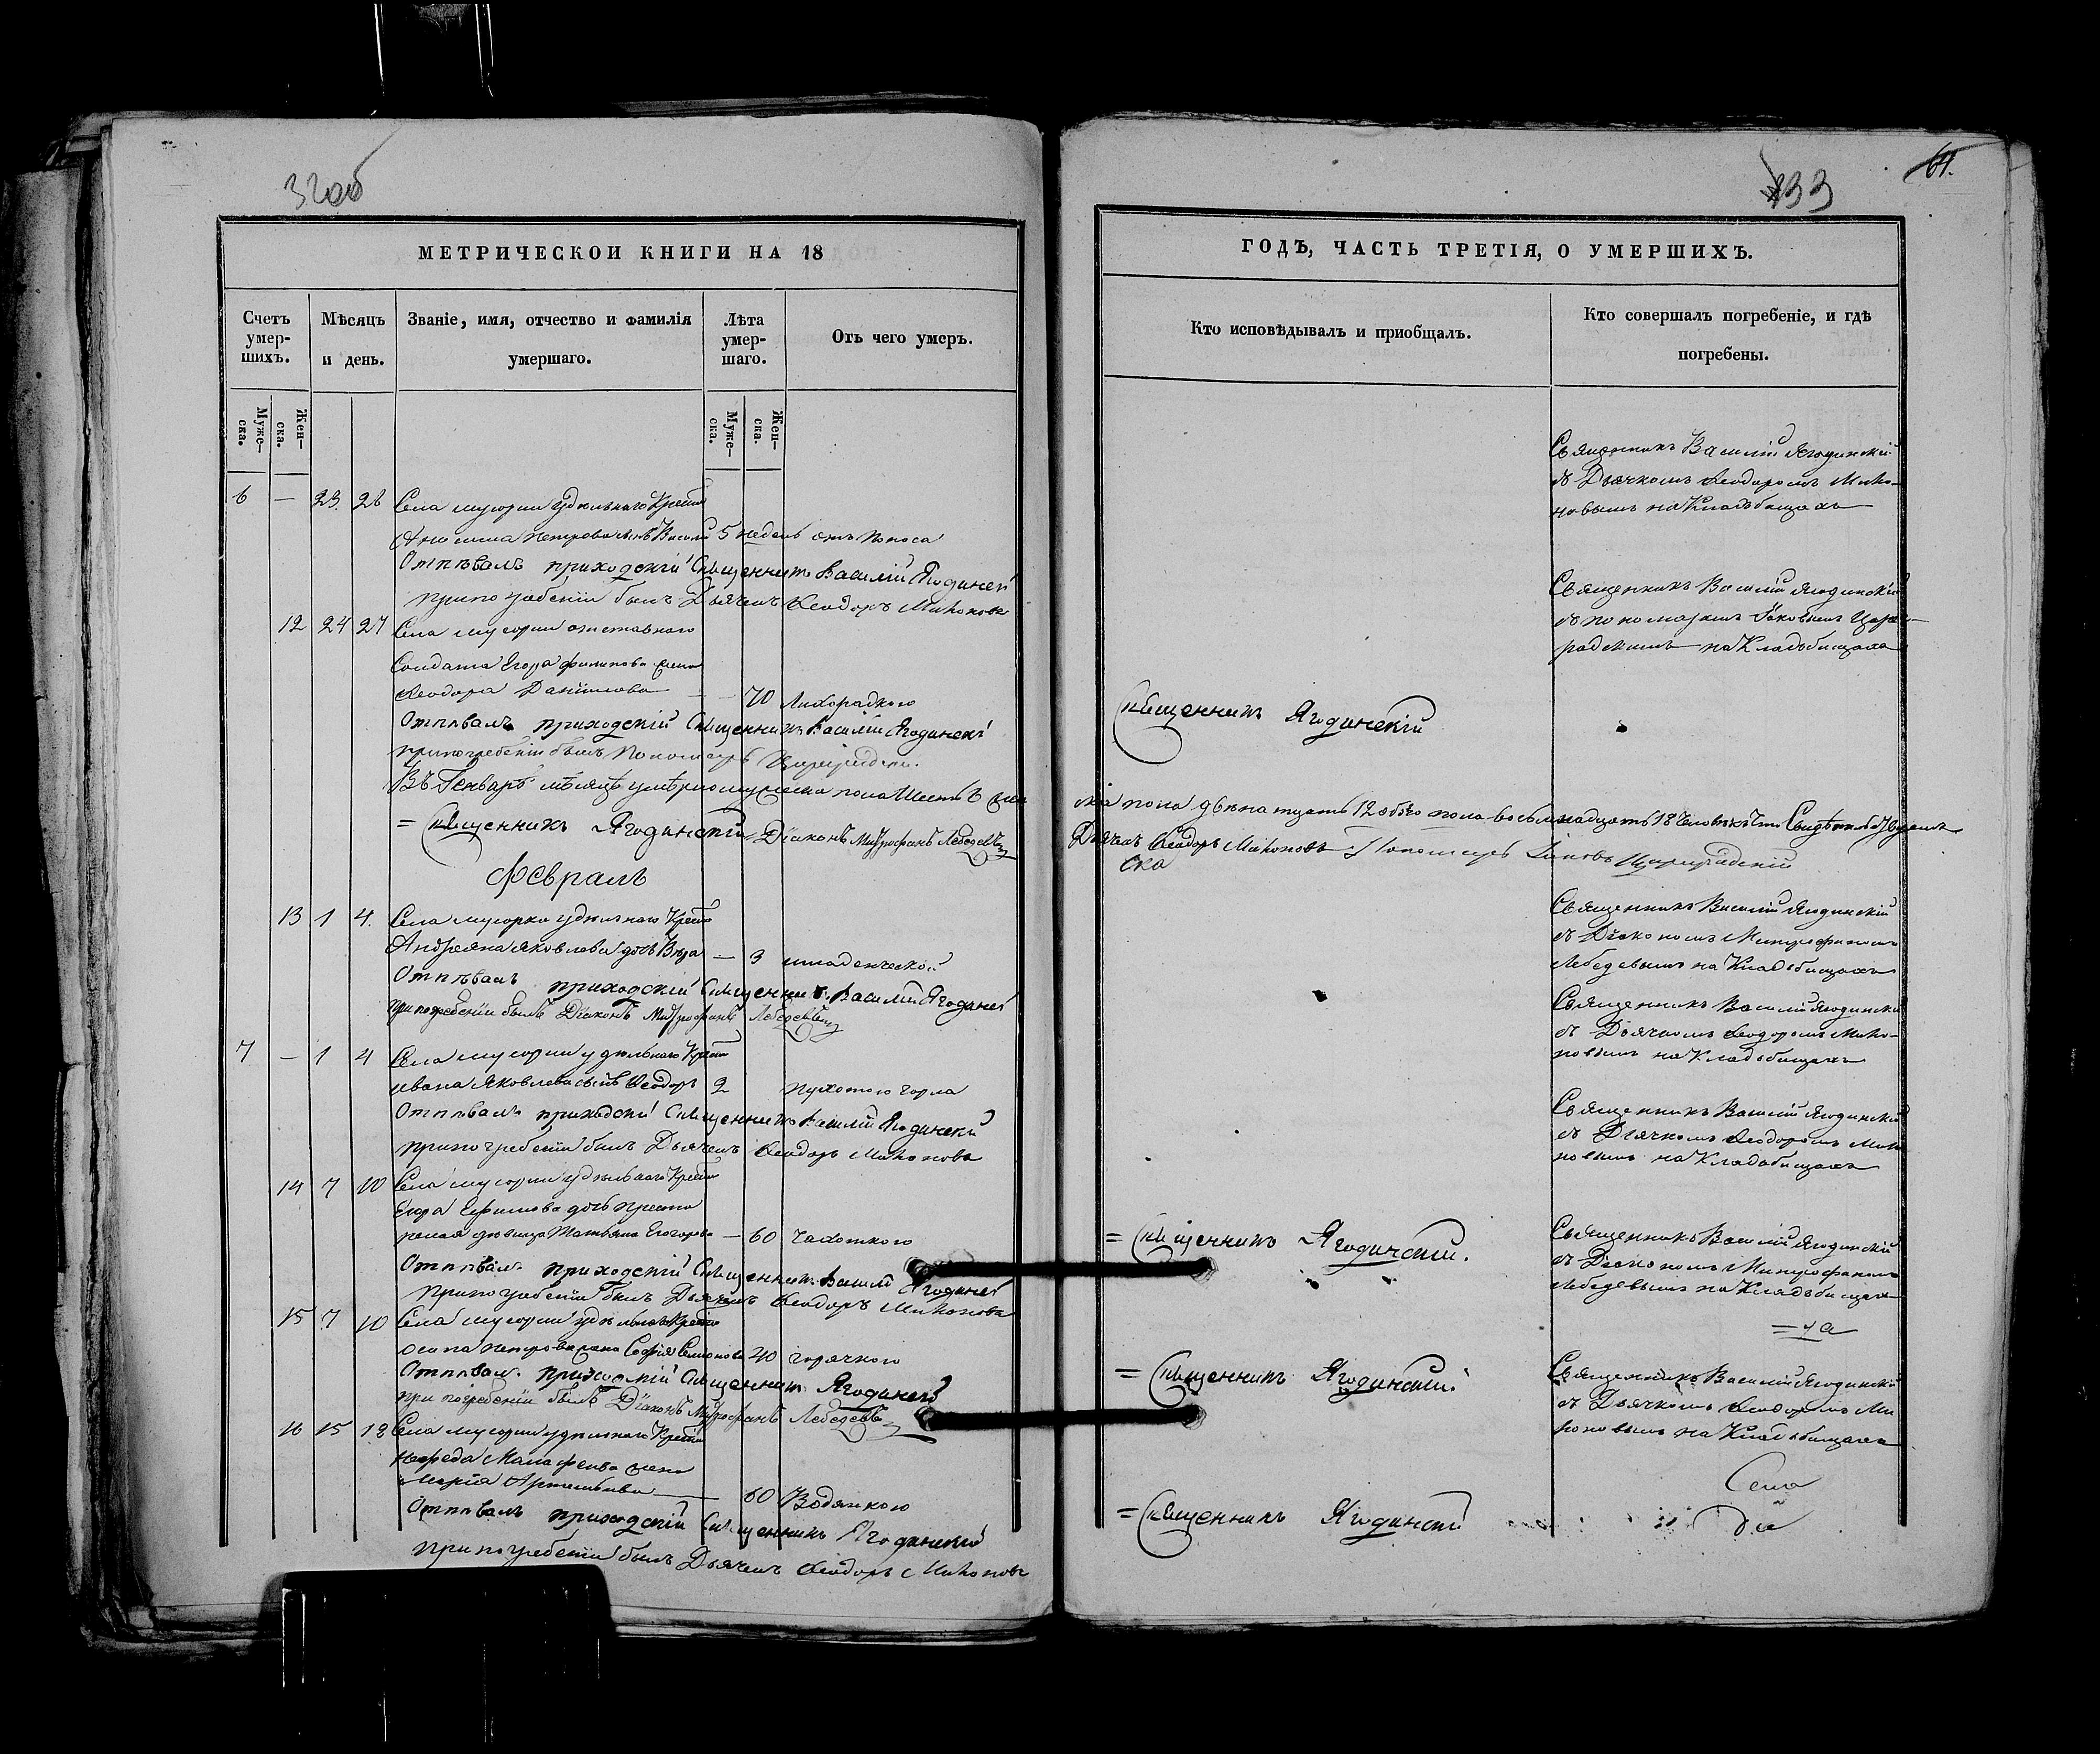 32об
МЕТРИЧЕСКОЙ КНИГИ НА 18
Счетъ умер-шихъ.
Мѣсяцъ и день.
Званіе, имя, отчество и фамилія умершаго.
Лѣта умер-шаго.
Отъ чего умеръ.
Муже-ска.
Жен-ска.
Муже-ска.
Жен-ска.
6 — 23 26 Села мусорки удѣльнаго Крестья
Анисима Петрова сынъ Василій 5 недель отъ поноса
Отпѣвалъ приходскій Священникъ Василій Ягодинскі
при погребеніи былъ Дьячекъ Ѳеодоръ Миконовъ
12 24 27 Села мусорки отставнаго
Солдата Егора Филипова жена
Ѳеодора Данилова — — 70 Лихорадкою
Отпѣвалъ приходскій Священникъ Василій Ягодинскі
при погребеніи былъ Пономарь Цареградскі
Въ Генварѣ мѣсяцѣ умерло мужеска пола Шесть 6 жен
= Священникъ Ягодинскій Діаконъ Митрофанъ Лебедевъ
Февраль
13 1 4. Села мусорки удѣльнаго Кресть
Андреяна Яковлева дочь Вѣра — 3 младенческой
Отпѣвалъ приходскій Священникъ Василій Ягодинскі
при погребеніи былъ Діаконъ Митрофанъ Лебедевъ
7 — 1 4 Села мусорки удѣльнаго Крестья
Ивана Яковлева сынъ Ѳеодоръ 2 пухотою горла
Отпѣвалъ приходскі Священникъ Василій Ягодинскй
при погребеніи былъ Дьячекъ Ѳеодоръ Миконовъ
14 7 10 Села мусорки удѣльнаго Крестья
Егора Ефимова дочь
дѣвица Татьяна Егорова — 60 Чахоткою
Отпѣвалъ приходскій Священникъ Василій Ягодинскі
при погребеніи былъ Дьячекъ Ѳеодоръ Миконовъ
15 7 10 Села мусорки удѣльнаго Крестья
Осипа Петрова жена Софія Семионова 40 горячкою
Отпѣвалъ приходскій Священникъ Ягодинскі
при погребеніи былъ Діаконъ Митрофанъ Лебедевъ
16 15 18 Села мусорки удѣльнаго Крестья
Нефеда Малафеева жена
Марія Артемьева — 60 Водянкою
Отпѣвалъ приходскій Священникъ Ягодинскій
при погребеніи былъ Дьячекъ Ѳеодоръ Миконовъ
33
61.
ГОДЪ, ЧАСТЬ ТРЕТІЯ, О УМЕРШИХЪ.
Кто исповѣдывалъ и приобщалъ.
Кто совершалъ погребеніе, и гдѣ погребены.
Священникъ Василій Ягодинскій
съ Дьячкомъ Ѳеодоромъ Мико-
новымъ на Кладбищахъ
Священникъ Василій Ягодинскій
съ пономаремъ Іаковымъ Царе-
градскимъ на Кладбищахъ
Священникъ Ягодинскій
ска пола двѣнатцать 12 обоего пола восемьнадцать 18 человѣкъ
Дьячекъ Ѳеодоръ Миконовъ Пономарь Іаковъ Цареградскій
ска
Священникъ Василій Ягодинскій
съ Діакономъ Митрофаномъ
Лебедевымъ на Кладбищахъ
Священникъ Василій Ягодинскій
съ Дьячкомъ Ѳеодоромъ Мико-
новымъ на Кладбищахъ
Священникъ Василій Ягодинскій
съ Дьячкомъ Ѳеодоромъ Мико
новымъ на Кладбищахъ
= Священникъ Ягодинскій.
Священникъ Василій Ягодинскій
съ Діакономъ Митрофаномъ
Лебедевымъ на Кладбища
= Священникъ Ягодинскій.
Священникъ Василій Ягодинскій
съ Дьячкомъ Ѳеодоромъ Ми
коновымъ на Кладбищахъ
Села
= Священникъ Ягодинскі